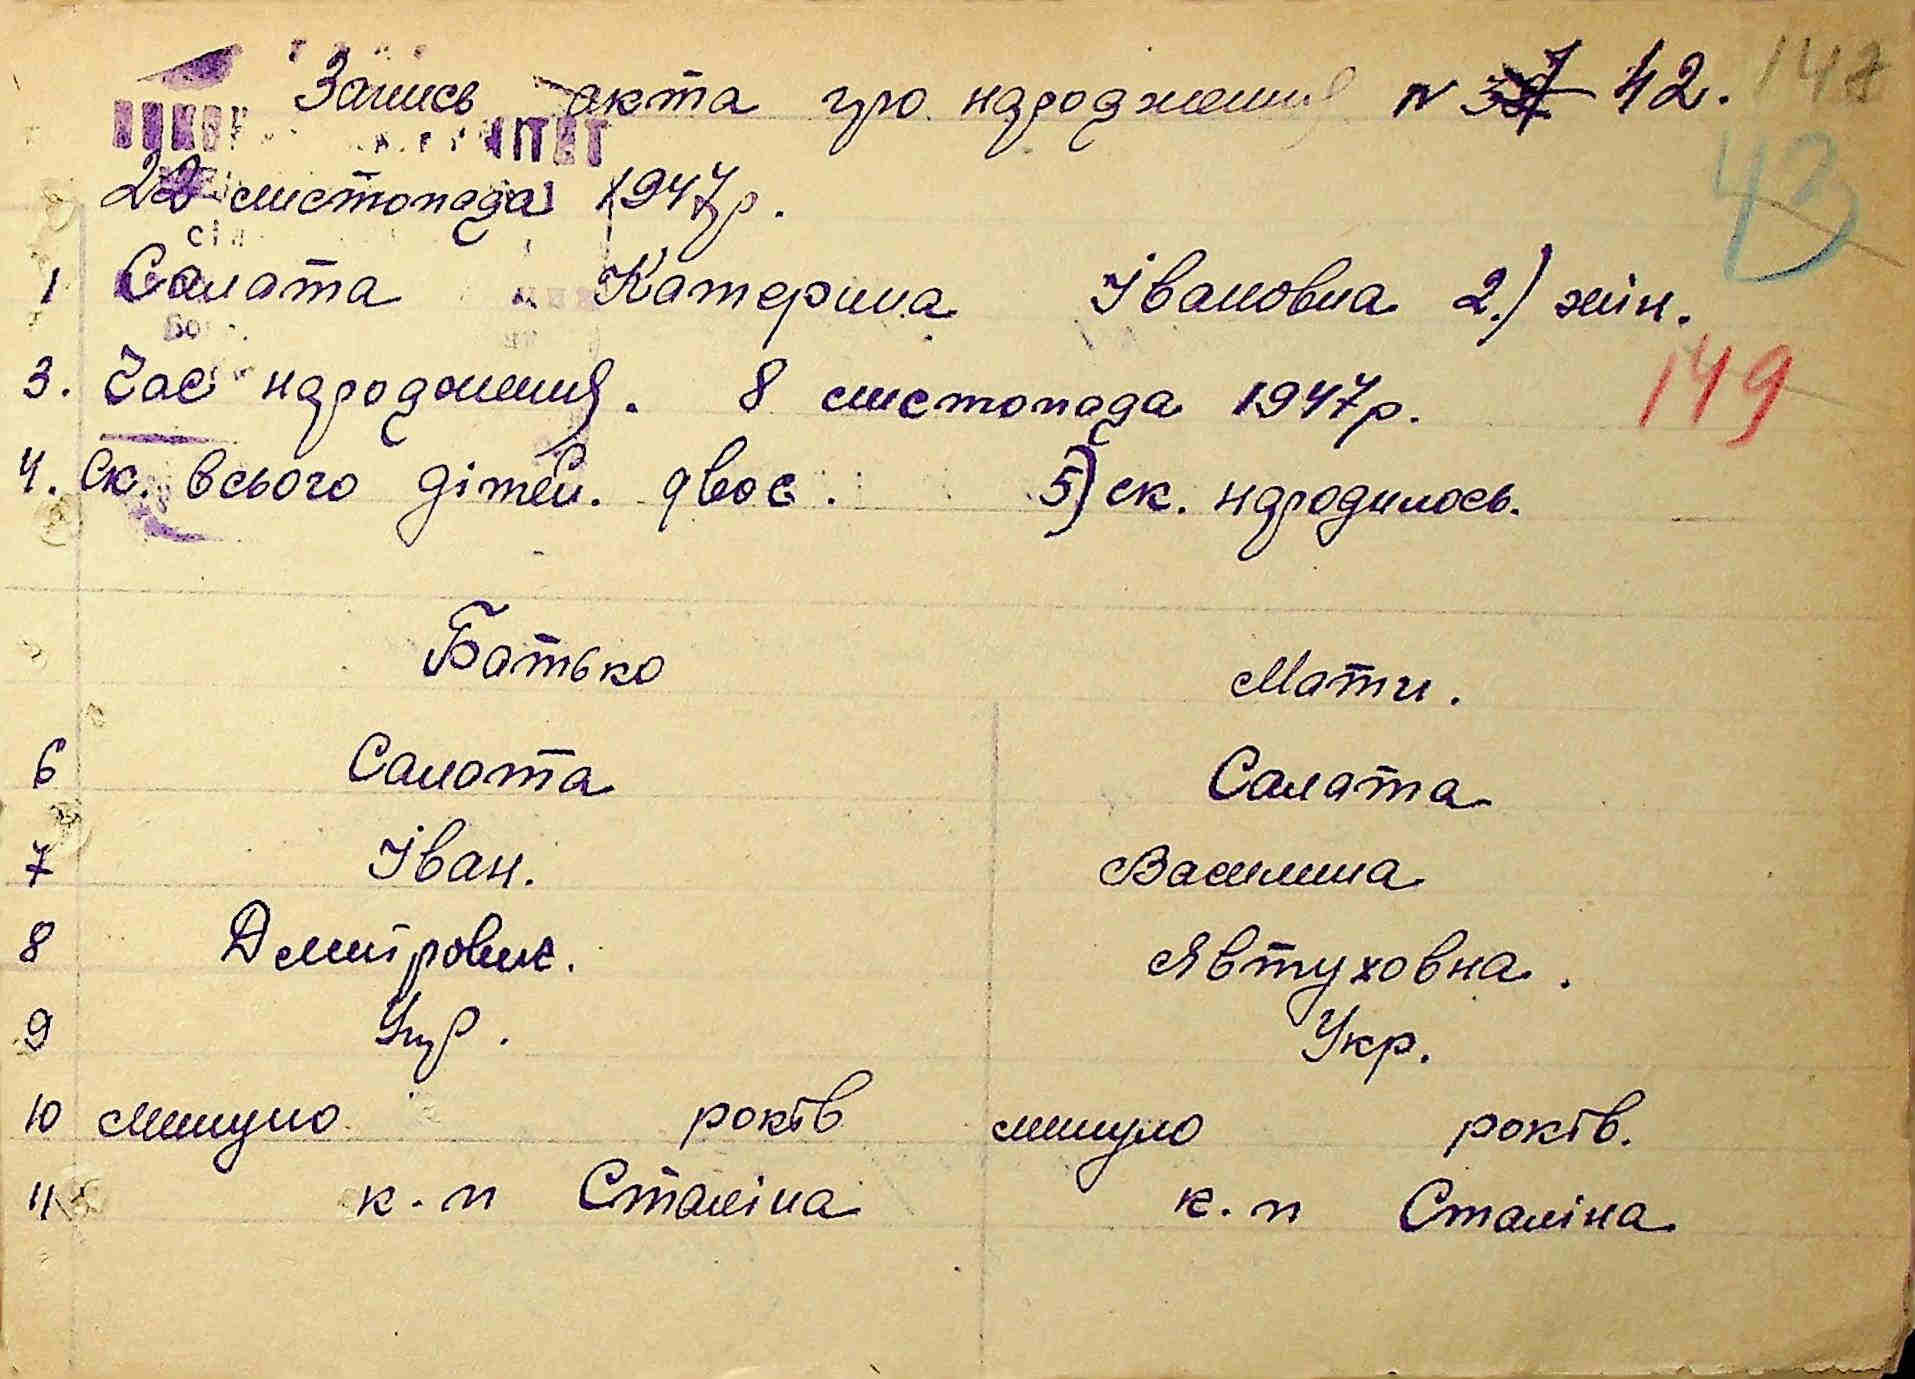 Запись акта про народження N 42. 147
43
22 листопада 1947р.
1 Салата Катерина Івановна 2.) жін.
149
3. Час народження. 8 листопада 1947р.
4. Ск. всього дітей. двоє. 5) ск. народилось.
Батько Мати.
6 Салата Салата
7 Іван. Василина
8 Дмитрович. Явтуховна.
9 Укр. Укр.
10 минуло років минуло років.
11 к. п Сталіна к. п Сталіна